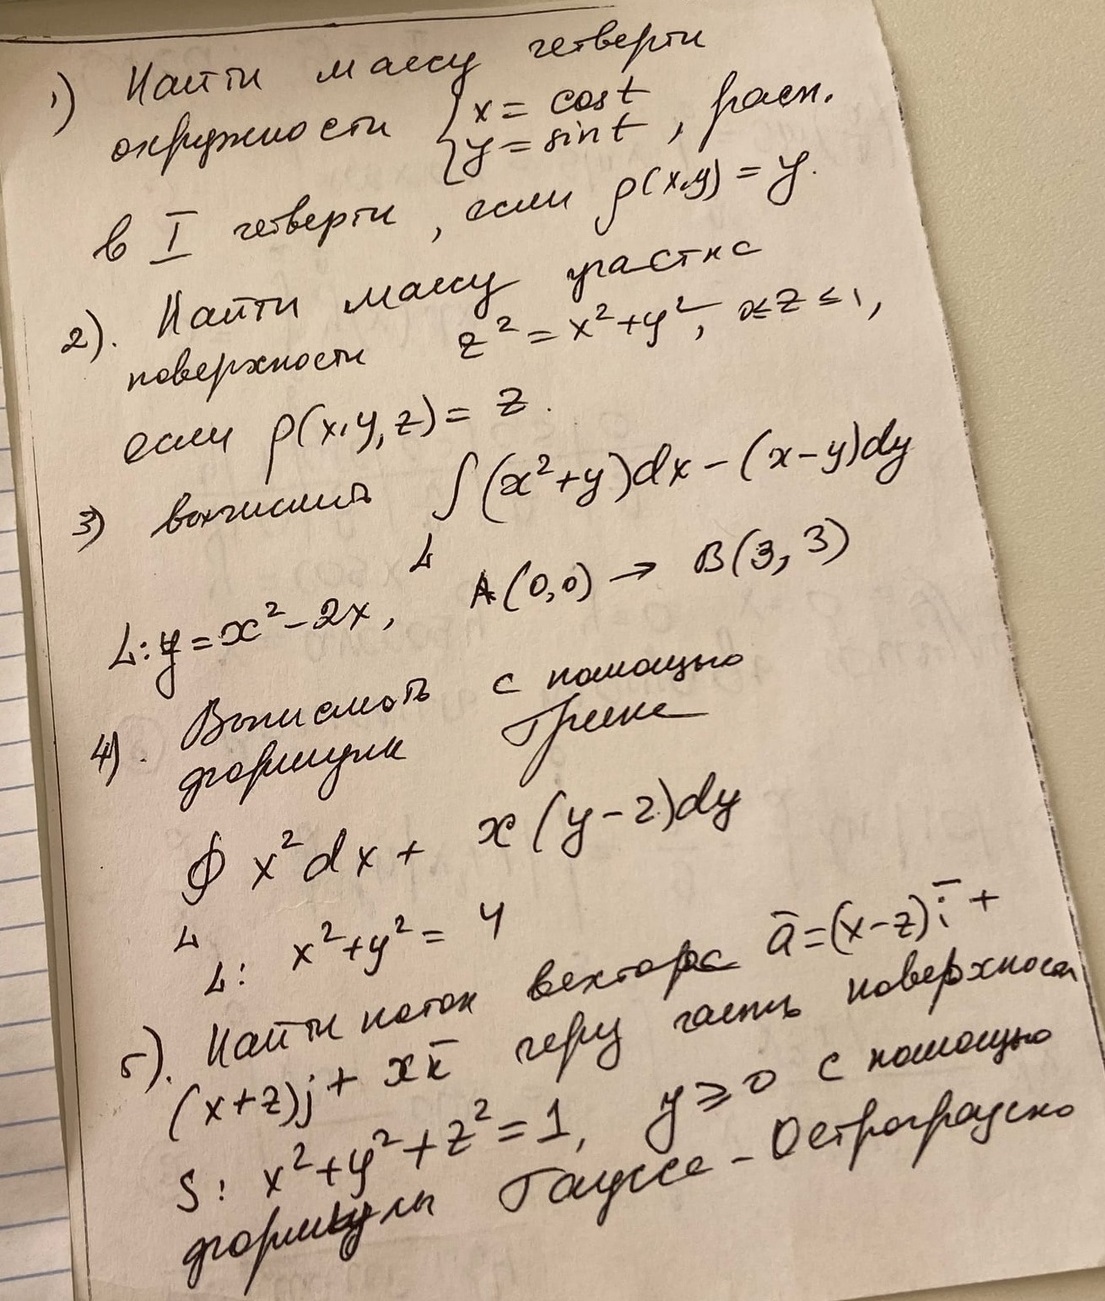 1) Найти массу четверти
окружности { x = cos t
y = sin t , расп.
в I четверти, если ρ(x,y) = y.
2). Найти массу участка
поверхности z² = x² + y², 0≤z≤1,
если ρ(x,y,z) = z.
3) вычислить ∫ (x²+y)dx - (x-y)dy
L
L: y = x² - 2x, A(0,0) → B(3,3)
4). Вычислить с помощью
формулы Грина
∮ x²dx + x(y-2)dy
L
L: x² + y² = 4
5). Найти поток вектора ā = (x-z)ī +
(x+z)j + xk̄ через часть поверхности
S: x² + y² + z² = 1, y ≥ 0 с помощью
формулы Гаусса-Остроградско